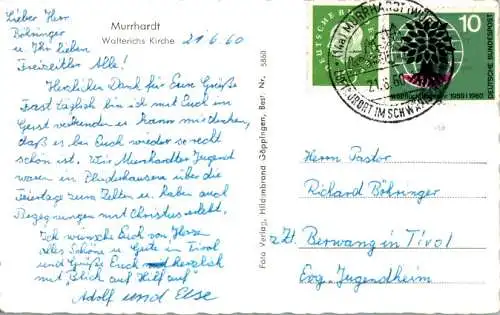 Murrhardt
Walterichs Kirche
21.6.60
Lieber Herr
Böhringer
u Ihr lieben
Freizeitler Alle!
Herzlichen Dank für Eure Grüße
Fast täglich bin ich mit Euch im
Geist verbunden u kann mir denken,
daß es bei Euch wieder so recht
schön ist. Wir Murrhardter Jugend
waren in Plüderhausen über die
Feiertage zum Zelten u. haben auch
Begegnungen mit Christus erlebt.
Ich wünsche Euch von Herzen
alles Schöne u Gute in Tirol
und Grüße Euch herzlich
mit "Blick auf Hilf auf"
Adolf und Else
Foto Verlag, Hildenbrand Göppingen, Best Nr. 5860
DEUTSCHE BUNDESPOST
10
DEUTSCHE BUNDESPOST
1959 1960
(14a) MURRHARDT (WÜRTT)
21.6.60
LUFTKURORT IM SCHWÄB
Herrn Pastor
Richard Böhringer
z. Zt. Berwang in Tirol
Evg. Jugendheim